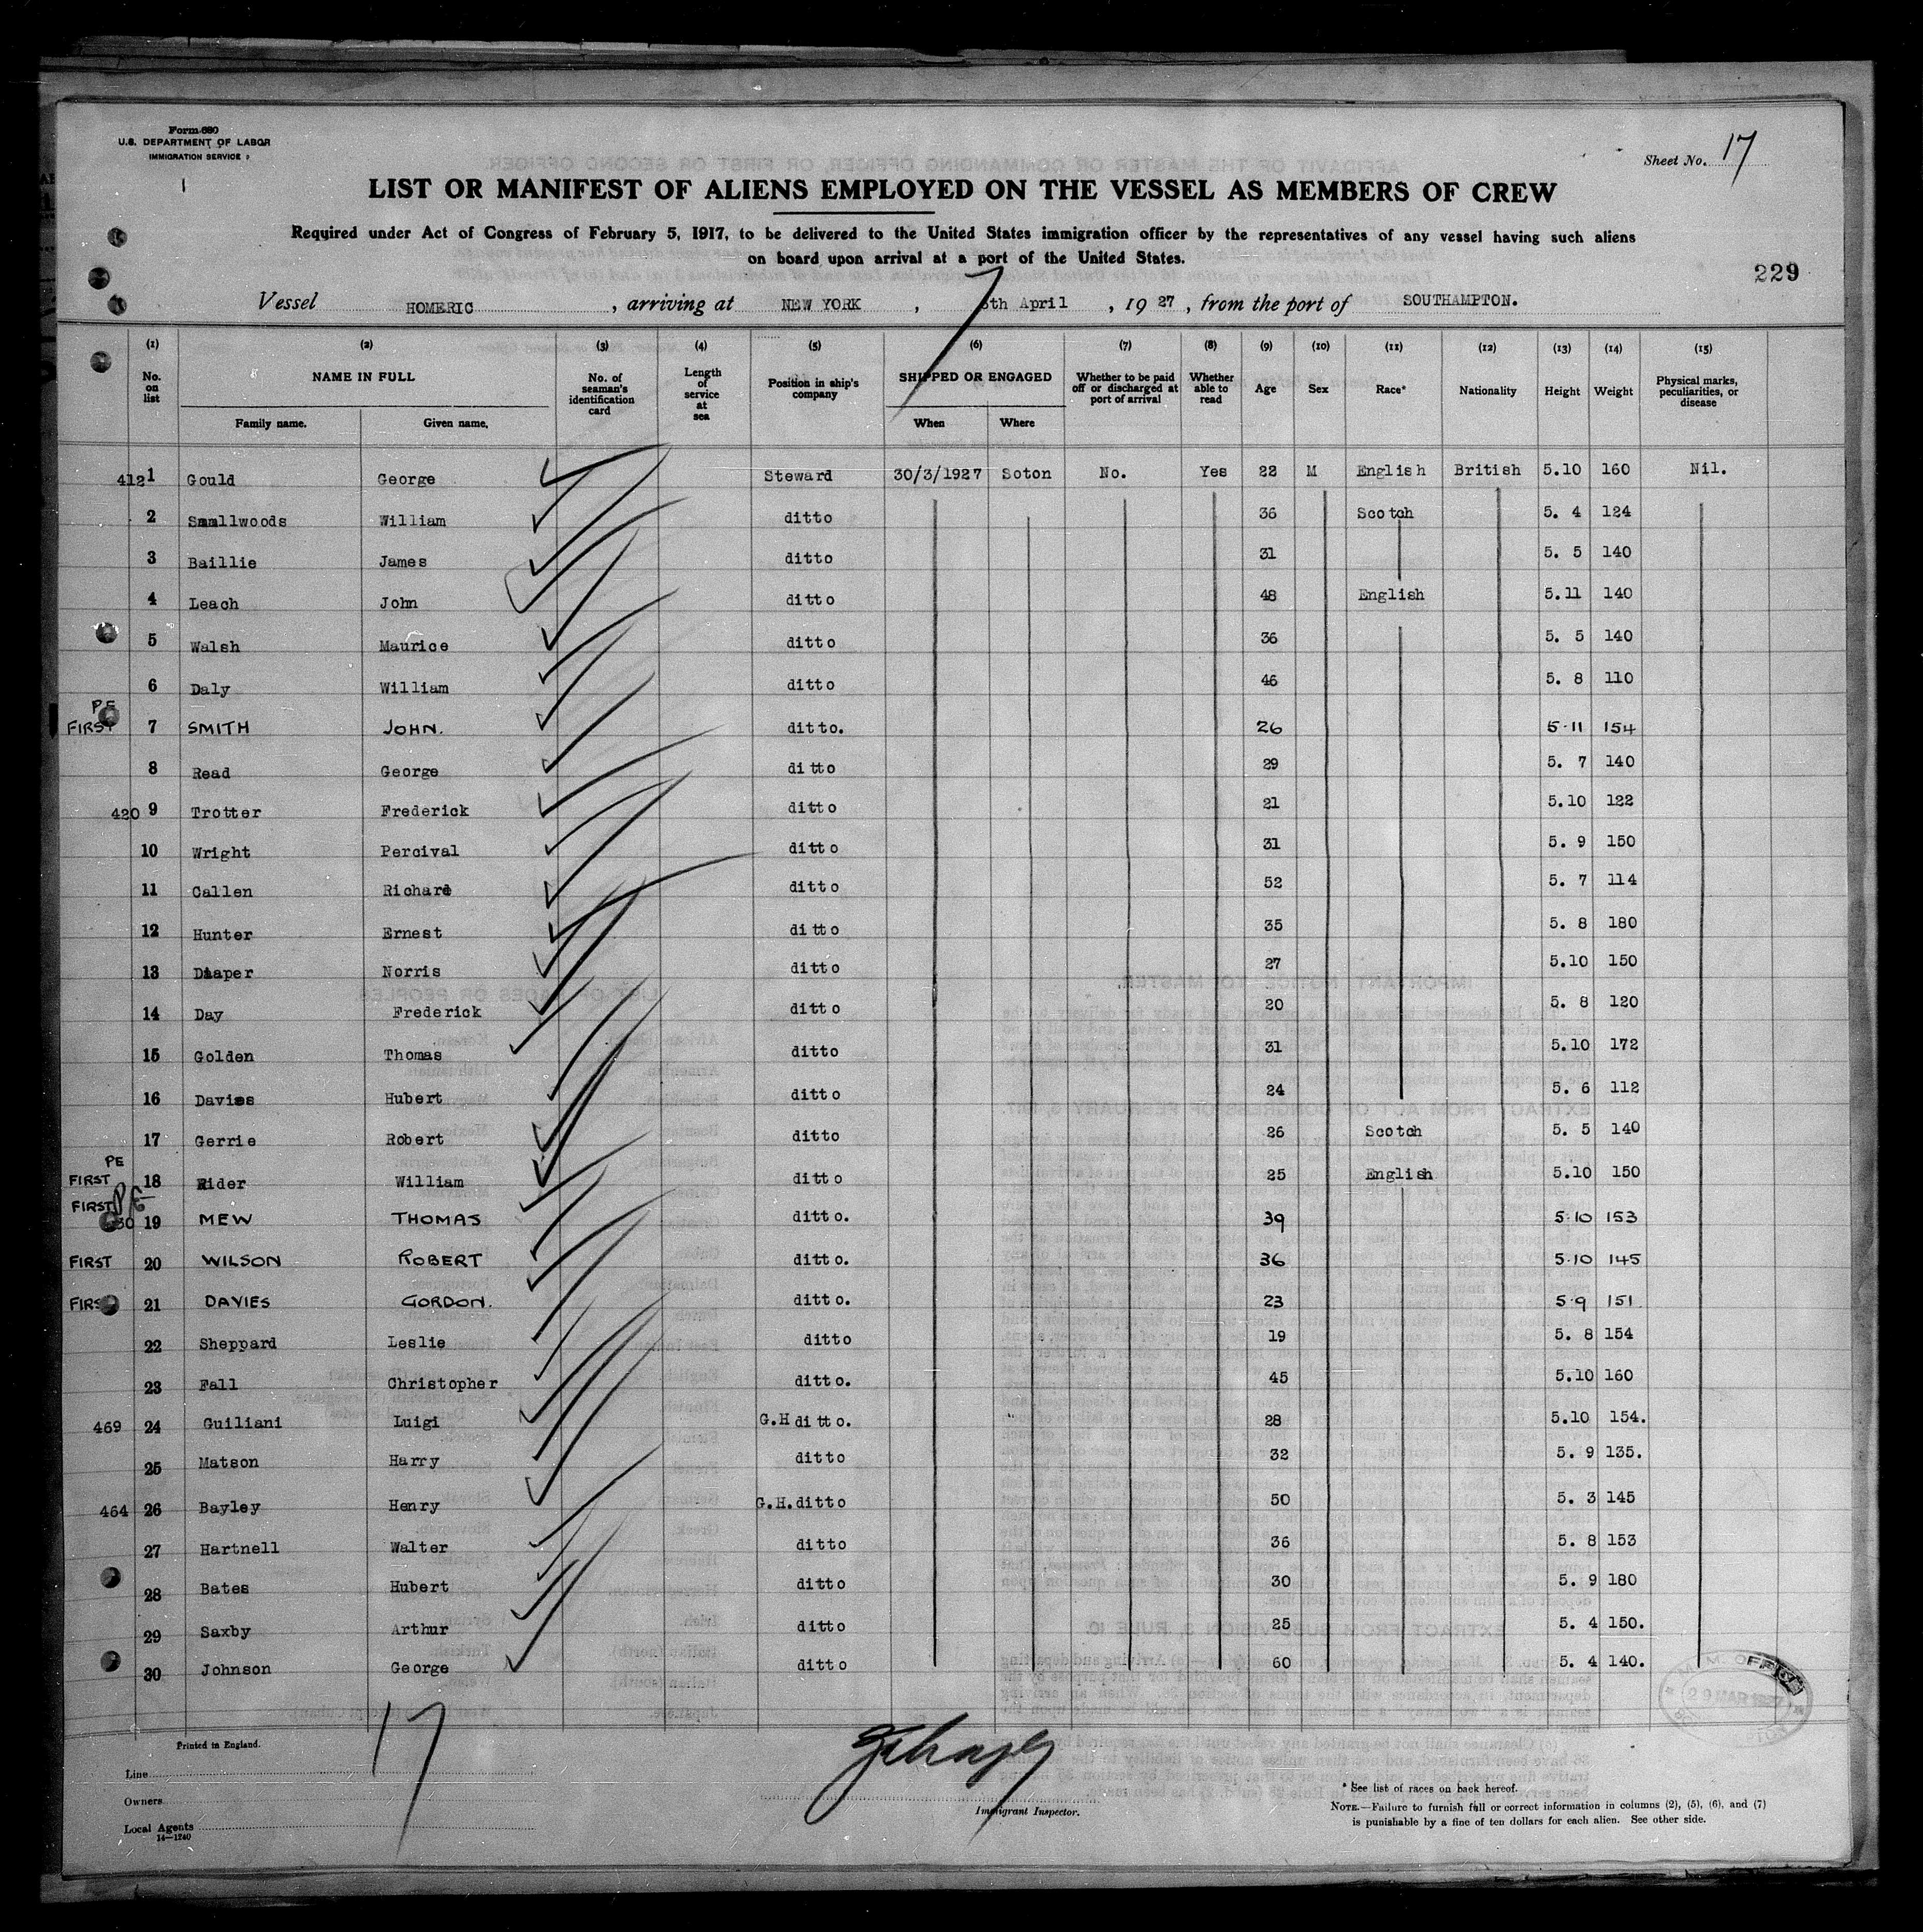 Form 680
U.S. DEPARTMENT OF LABOR
IMMIGRATION SERVICE
Sheet No. 17
LIST OR MANIFEST OF ALIENS EMPLOYED ON THE VESSEL AS MEMBERS OF CREW
Required under Act of Congress of February 5, 1917, to be delivered to the United States immigration officer by the representatives of any vessel having such aliens
on board upon arrival at a port of the United States.
229
Vessel HOMERIC, arriving at NEW YORK, 7 April, 1927, from the port of SOUTHAMPTON.
(1) (2) (3) (4) (5) (6) (7) (8) (9) (10) (11) (12) (13) (14) (15)
No. on list NAME IN FULL No. of seaman's identification card Length of service at sea Position in ship's company SHIPPED OR ENGAGED Whether to be paid off or discharged at port of arrival Whether able to read Age Sex Race* Nationality Height Weight Physical marks, peculiarities, or disease
Family name. Given name. When Where
412 1 Gould George Steward 30/3/1927 Soton No. Yes 22 M English British 5.10 160 Nil.
2 Smallwoods William ditto 36 Scotch 5. 4 124
3 Baillie James ditto 31 5. 5 140
4 Leach John ditto 48 English 5.11 140
5 Walsh Maurice ditto 36 5. 5 140
6 Daly William ditto 46 5. 8 110
PE
FIRST 7 SMITH JOHN. ditto. 26 5·11 154
8 Read George ditto 29 5. 7 140
420 9 Trotter Frederick ditto 21 5.10 122
10 Wright Percival ditto 31 5. 9 150
11 Callen Richard ditto 52 5. 7 114
12 Hunter Ernest ditto 35 5. 8 180
13 Diaper Norris ditto 27 5.10 150
14 Day Frederick ditto 20 5. 8 120
15 Golden Thomas ditto 31 5.10 172
16 Davies Hubert ditto 24 5. 6 112
17 Gerrie Robert ditto 26 Scotch 5. 5 140
PE
FIRST 18 Rider William ditto 25 English 5.10 150
FIRST PE
30 19 MEW THOMAS ditto. 39 5·10 153
FIRST 20 WILSON ROBERT ditto. 36 5·10 145
FIRST 21 DAVIES GORDON. ditto. 23 5·9 151
22 Sheppard Leslie ditto 19 5. 8 154
23 Fall Christopher ditto. 45 5.10 160
469 24 Guiliani Luigi G.H ditto. 28 5.10 154.
25 Matson Harry ditto 32 5. 9 135.
464 26 Bayley Henry G.H. ditto 50 5. 3 145
27 Hartnell Walter ditto 36 5. 8 153
28 Bates Hubert ditto 30 5. 9 180
29 Saxby Arthur ditto 25 5. 4 150.
30 Johnson George ditto 60 5. 4 140.
OFFICE
29 MAR 1927
17
Printed in England.
Line
Owners
Local Agents
14—1240
Immigrant Inspector.
* See list of races on back hereof.
NOTE.—Failure to furnish full or correct information in columns (2), (5), (6), and (7)
is punishable by a fine of ten dollars for each alien. See other side.